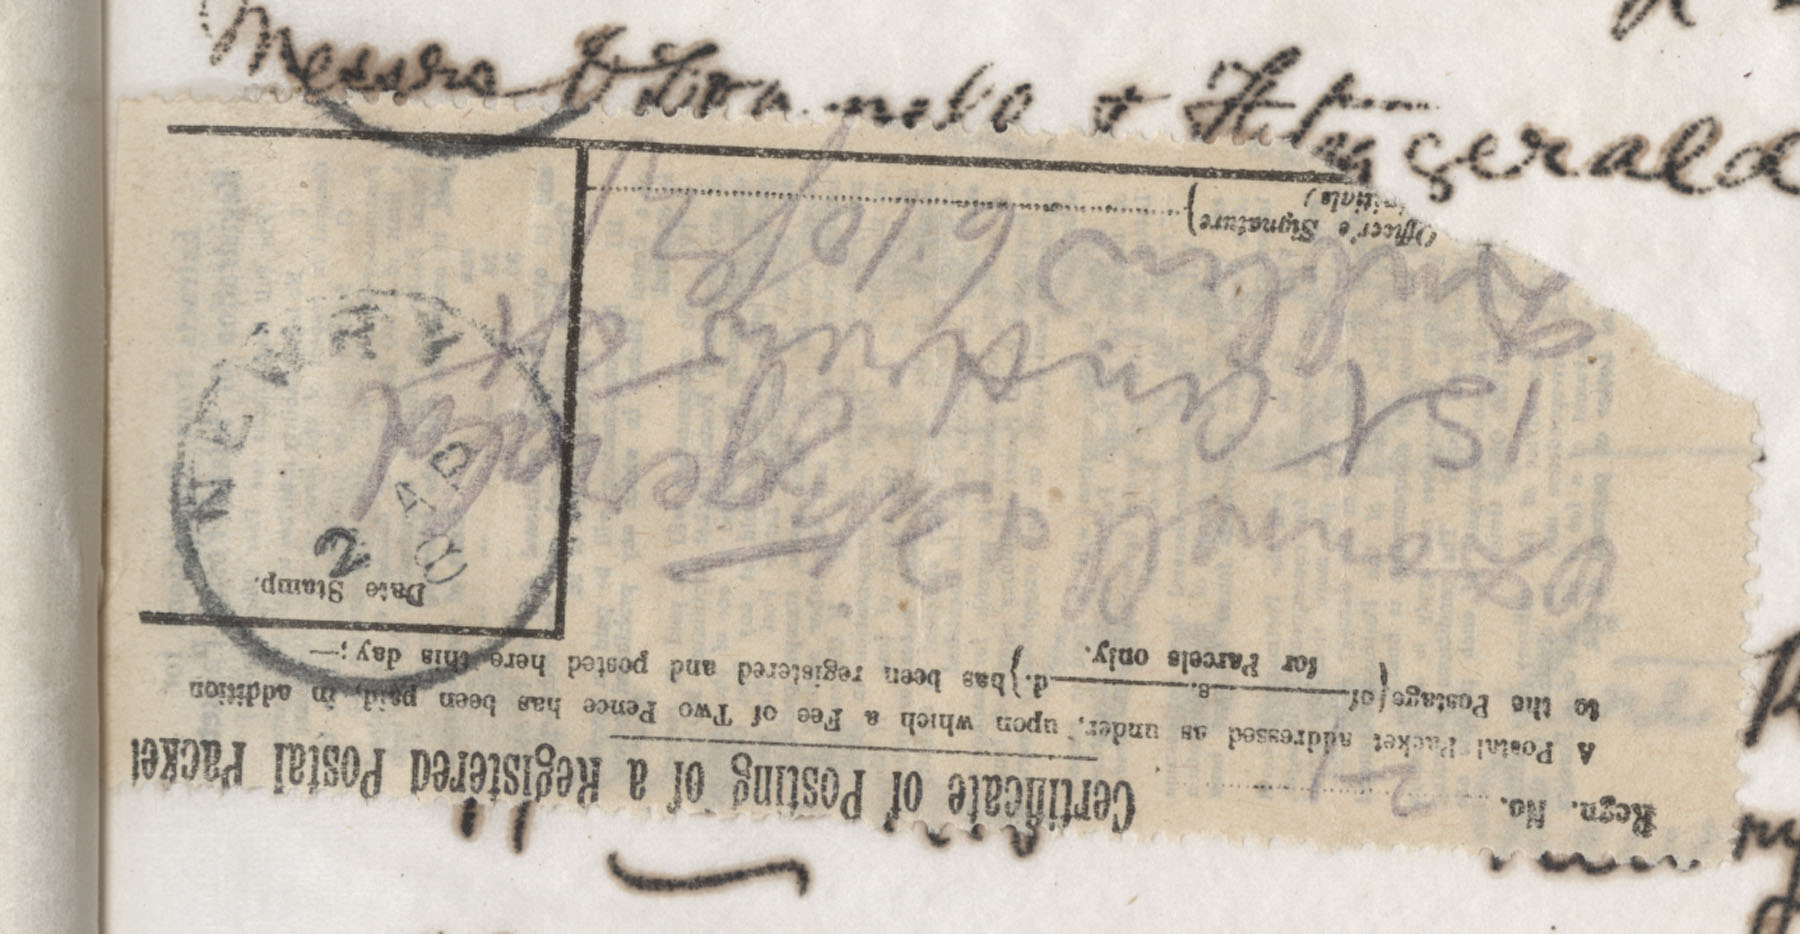 Messrs O'Connell & Fitzgerald
Regn. No.
Certificate of Posting of a Registered Postal Packet
A Postal Packet addressed as under, upon which a Fee of Two Pence has been paid, in addition
to the Postage {of s. d.} has been registered and posted here this day;—
for Parcels only.
Date Stamp.
2 AP
O'Connell & Fitzgerald
15 St Andrews St
Dublin
Officer's Signature